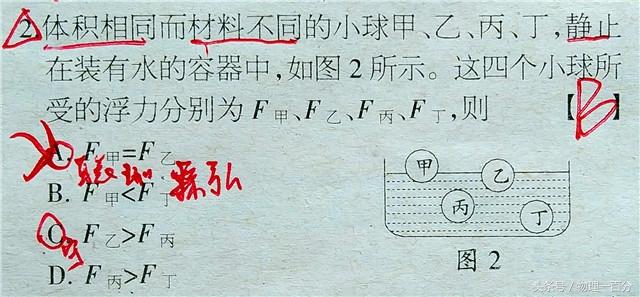 2.体积相同而材料不同的小球甲、乙、丙、丁,静止
在装有水的容器中,如图2所示。这四个小球所
受的浮力分别为F甲、F乙、F丙、F丁,则 【B】
A. F甲=F乙
B. F甲<F丁
C. F乙>F丙
D. F丙>F丁
甲
乙
丙
丁
图2
头条号/物理一百分